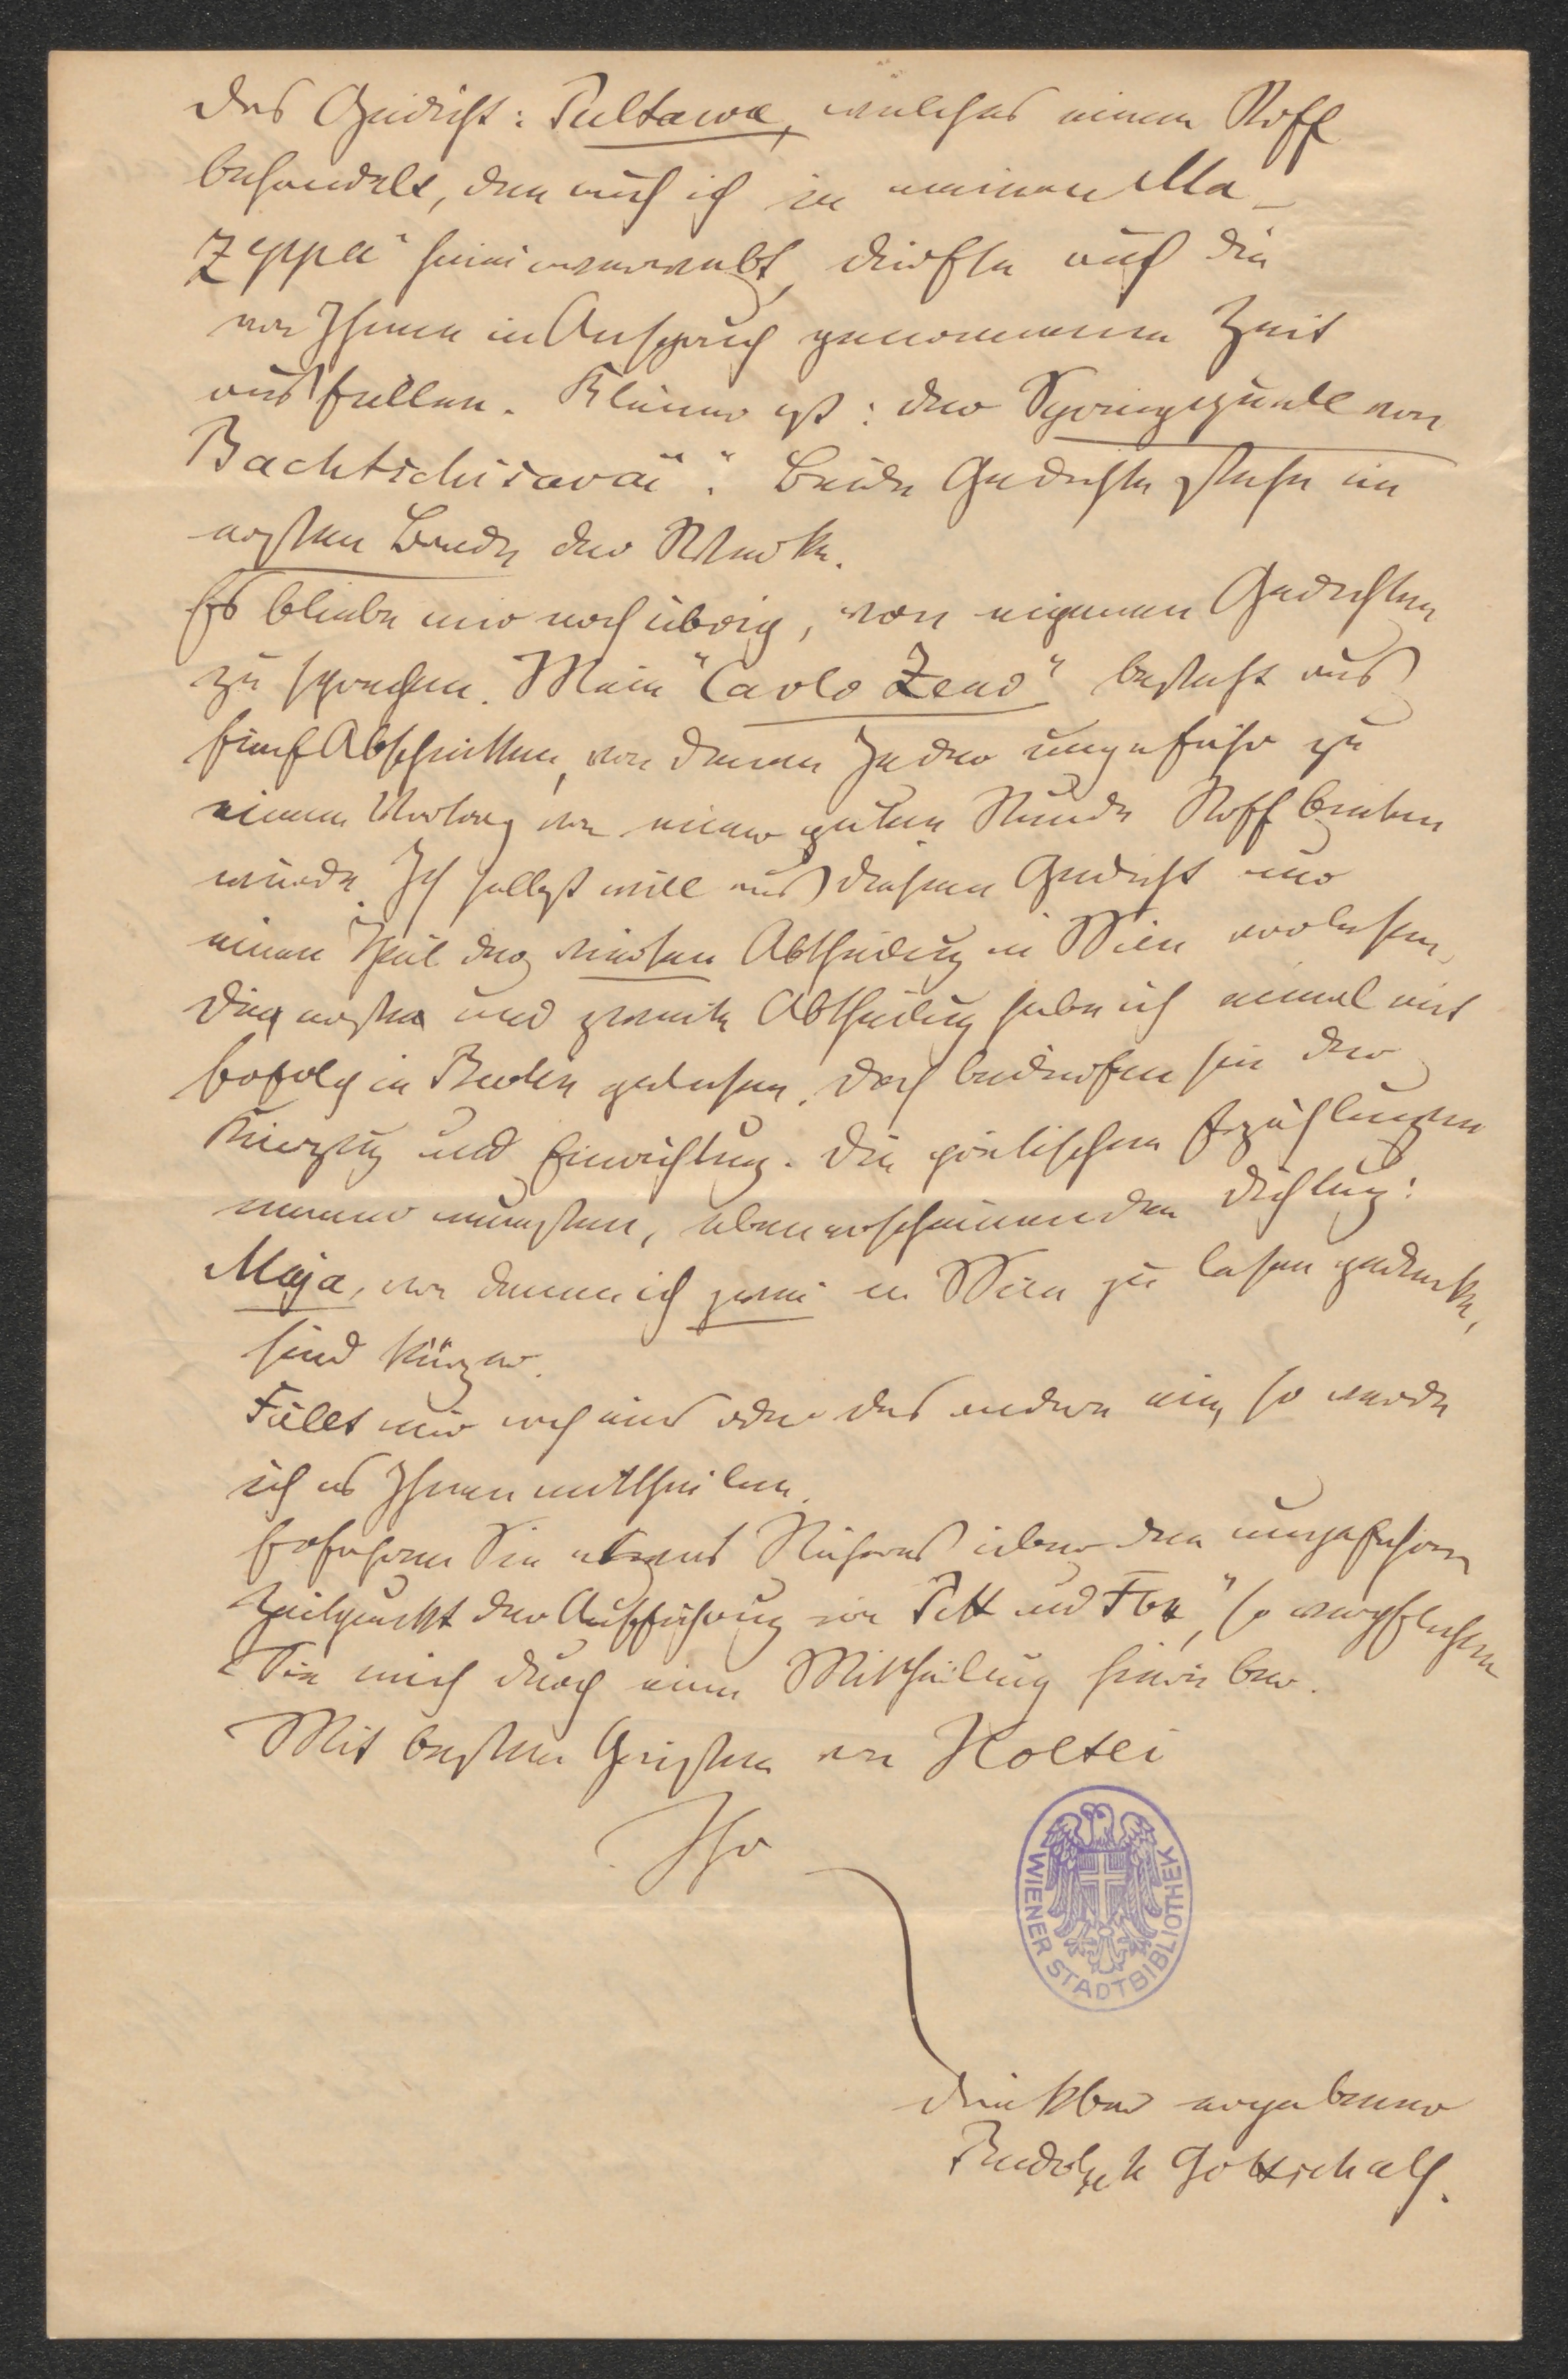 das Gedicht: Pultawa, welches einen Stoff
behandelt, den auch ich in meinen Ma-
zeppa" hineinverwebt, dürfte auch die
von Ihnen in Anspruch genommene Zeit
ausfüllen. Kleiner ist: der Springquell von
Bachtschisarai". Beide Gedichte stehn im
ersten Bande der Werke.
Es bliebe mir noch übrig, von eigenen Gedichten
zu sprechen. Mein "Carlo Zeno" besteht aus
fünf Abschnitten, von denen Jeder ungefähr zu
einem Vortrag von einer guten Stunde Stoff bieten
würde. Ich selbst will aus diesem Gedicht nur
einen Theil der vierten Abtheilung in Wien vorlesen,
die erste und zweite Abtheilung habe ich einmal mit
Erfolg in gelesen. Doch bedürfen sie der
Kürzung und Einrichtung. Die poetischen Erzählungen
meiner neuesten, eben erscheinenden Dichtung:
Maja, von denen ich zwei in Wien zu lesen gedenke,
sind kürzer.
Fällt mir noch eins oder das andere ein, so werde
ich es Ihnen mittheilen.
Erfahren Sie etwas Näheres über den ungefähren
Zeitpunkt der Aufführung von Pitt und Fox", so verpflichten
Sie mich durch eine Mittheilung hierüber.
Mit besten Grüßen von Holtei
Ihr
WIENER STADTBIBLIOTHEK
dankbar ergebener
Rudolph Gottschall.